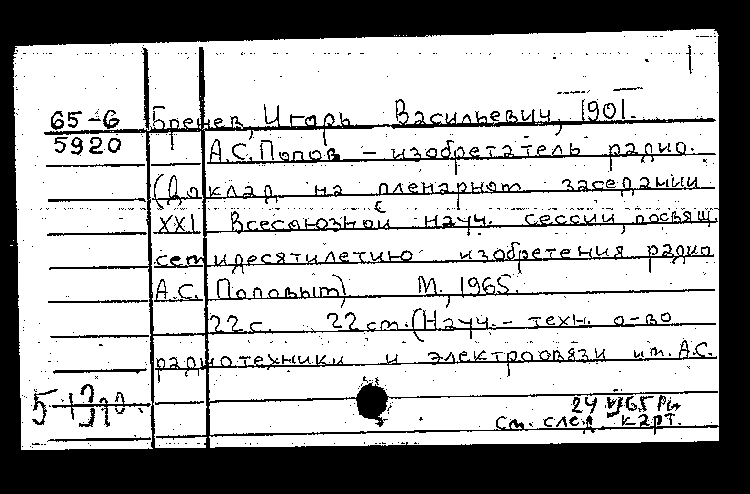 65-6 Бренев, Игорь Васильевич, 1901.
5920 А.С. Попов - изобретатель радио.
(Доклад на пленарном заседании
XXI Всесоюзной науч. сессии, посвящ.
семидесятилетию изобретения радио
А.С. Поповым) М., 1965.
22 с. 22 см. (Науч.- техн. о-во
радиотехники и электросвязи им. А.С.
24 VI 65
См. след. карт.